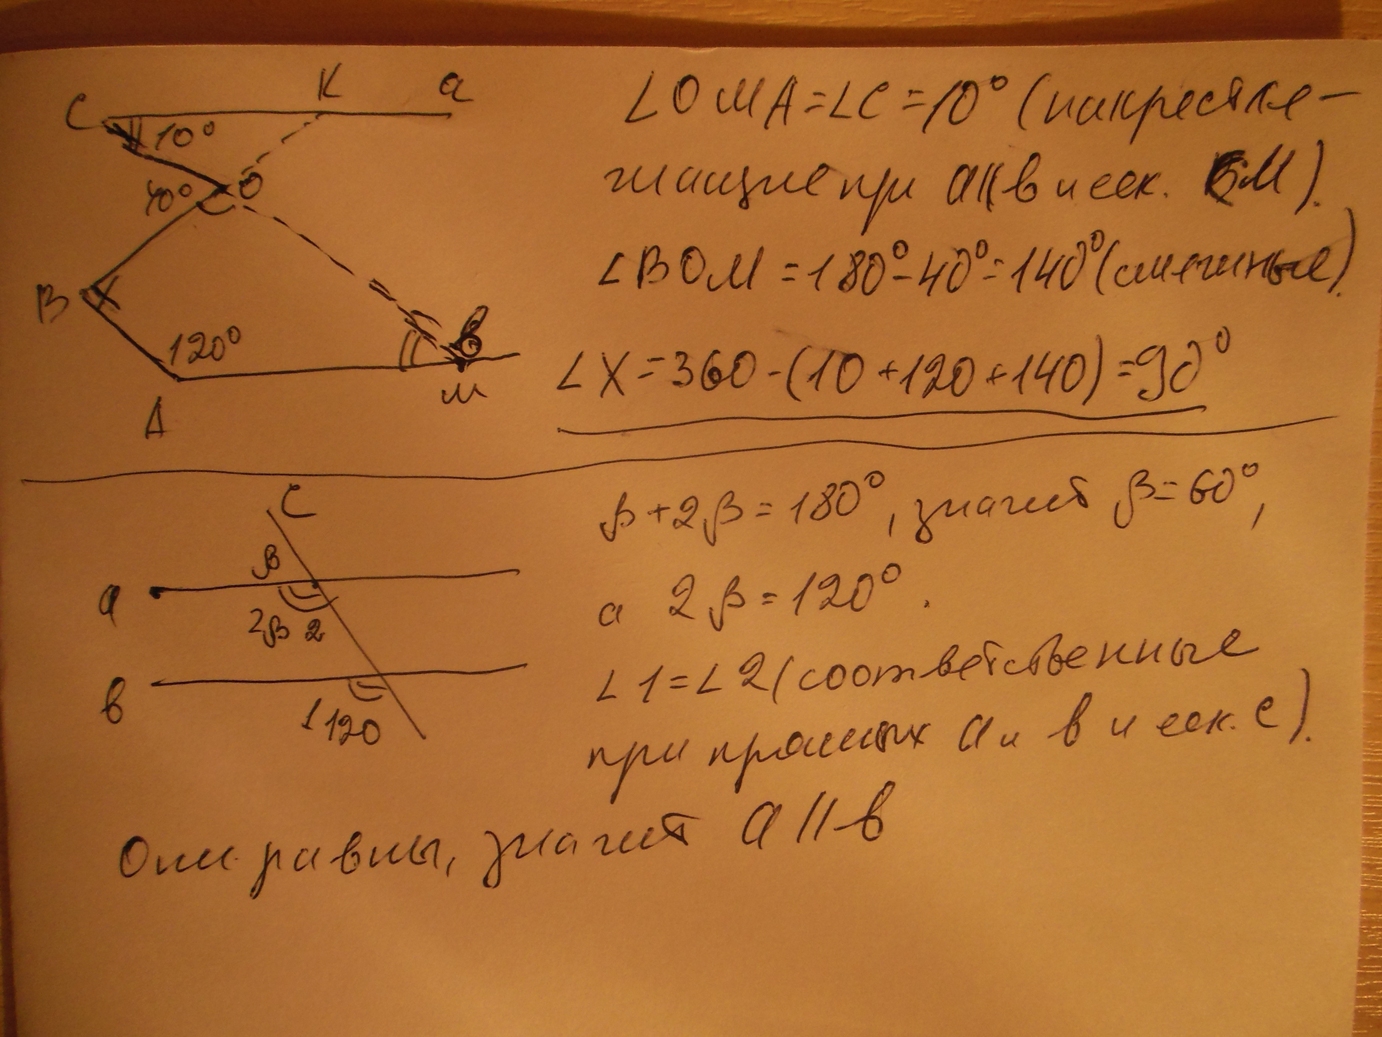 C K a
10°
40° O
B X
120°
в
A M
∠OMA=∠C=10° (накрестле-
жащие при a||в и сек. CM).
∠BOM=180°-40°=140° (смежные).
∠X=360-(10+120+140)=90°
C
β
a
2β 2
в
1 120
β+2β=180°, значит β=60°,
а 2β=120°.
∠1=∠2 (соответственные
при прямых a и в и сек. c).
Они равны, значит a||в